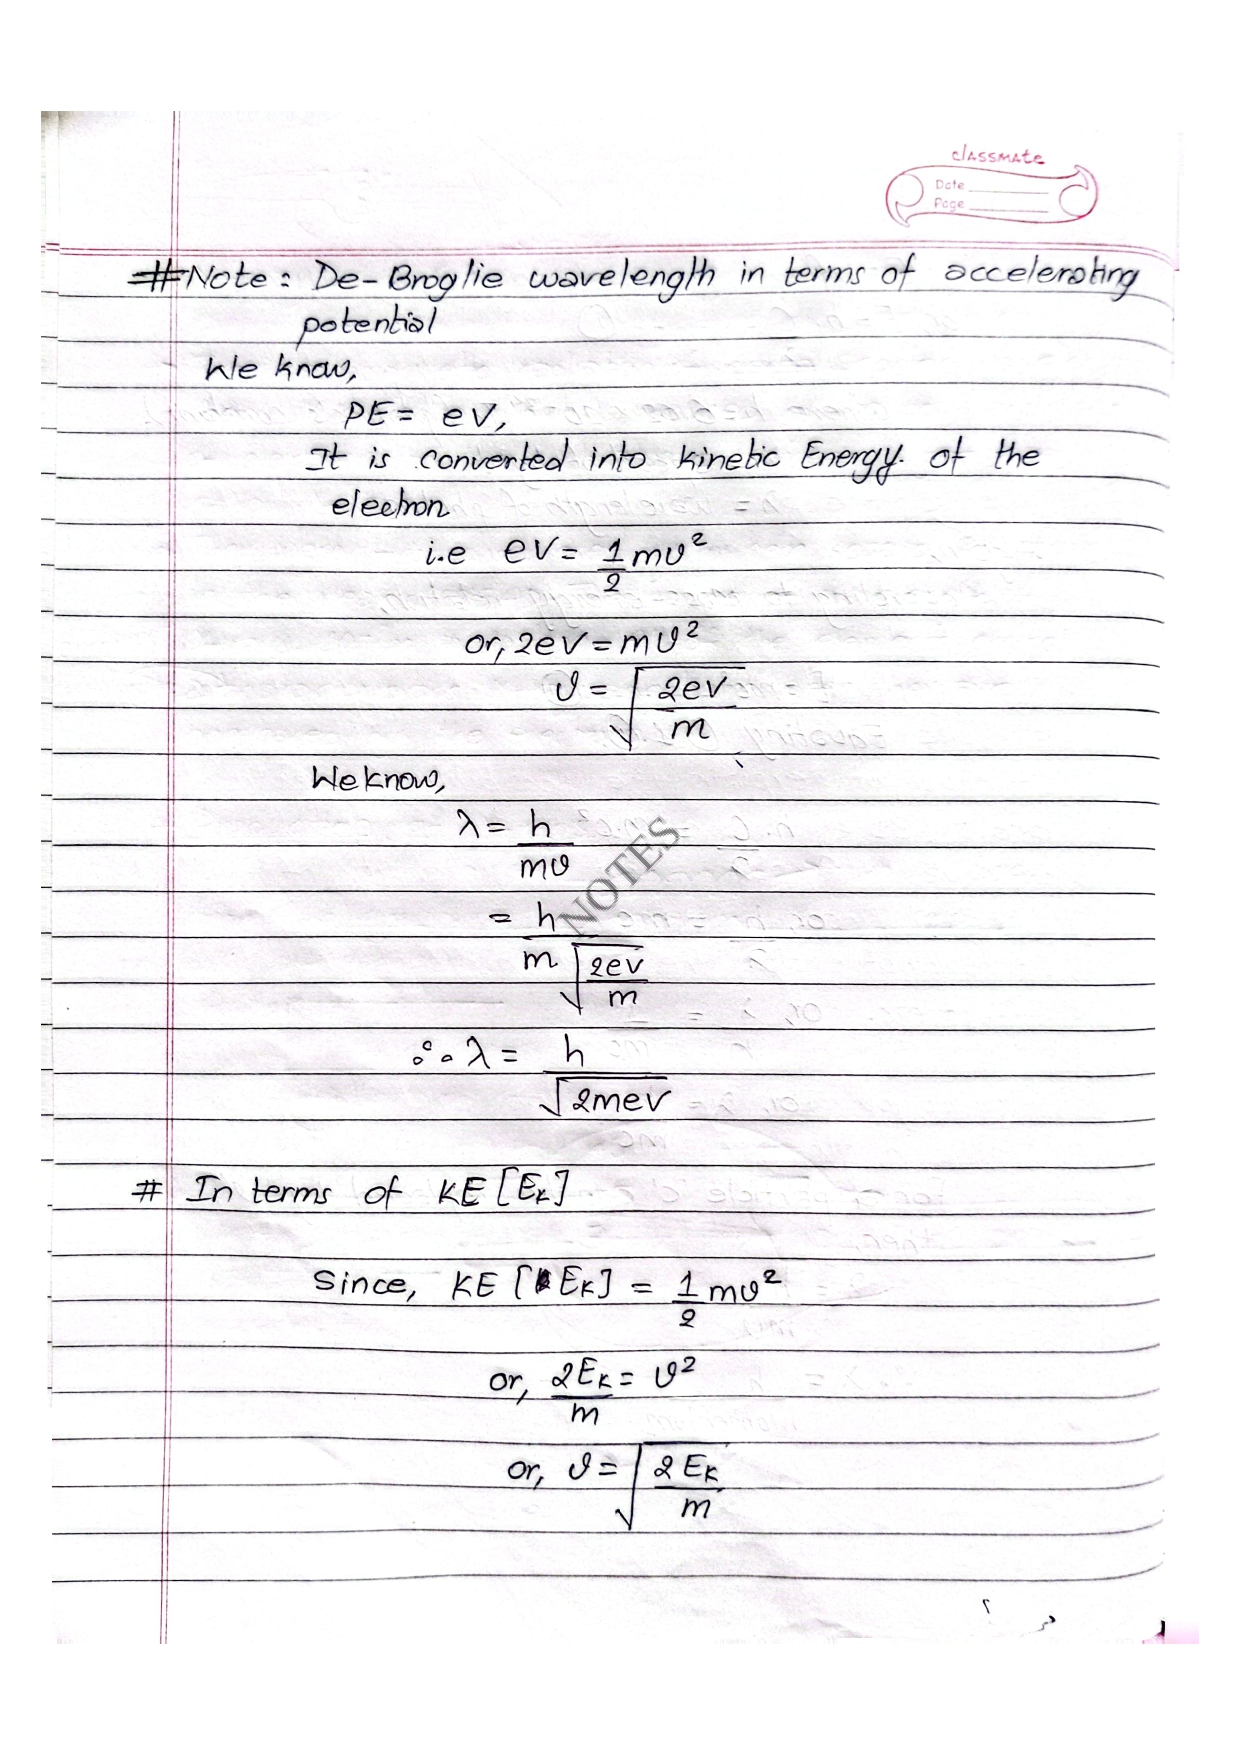 classmate
Date
Page
# Note: De-Broglie wavelength in terms of accelerating
potential
We know,
PE = eV,
It is converted into kinetic Energy. of the
electron
i.e eV = 1/2 mv²
or, 2eV = mv²
v = √(2eV/m)
We know,
λ = h/mv
= h/(m√(2eV/m))
∴ λ = h/√(2meV)
NOTES
# In terms of KE [Eₖ]
Since, KE [Eₖ] = 1/2 mv²
or, 2Eₖ/m = v²
or, v = √(2Eₖ/m)